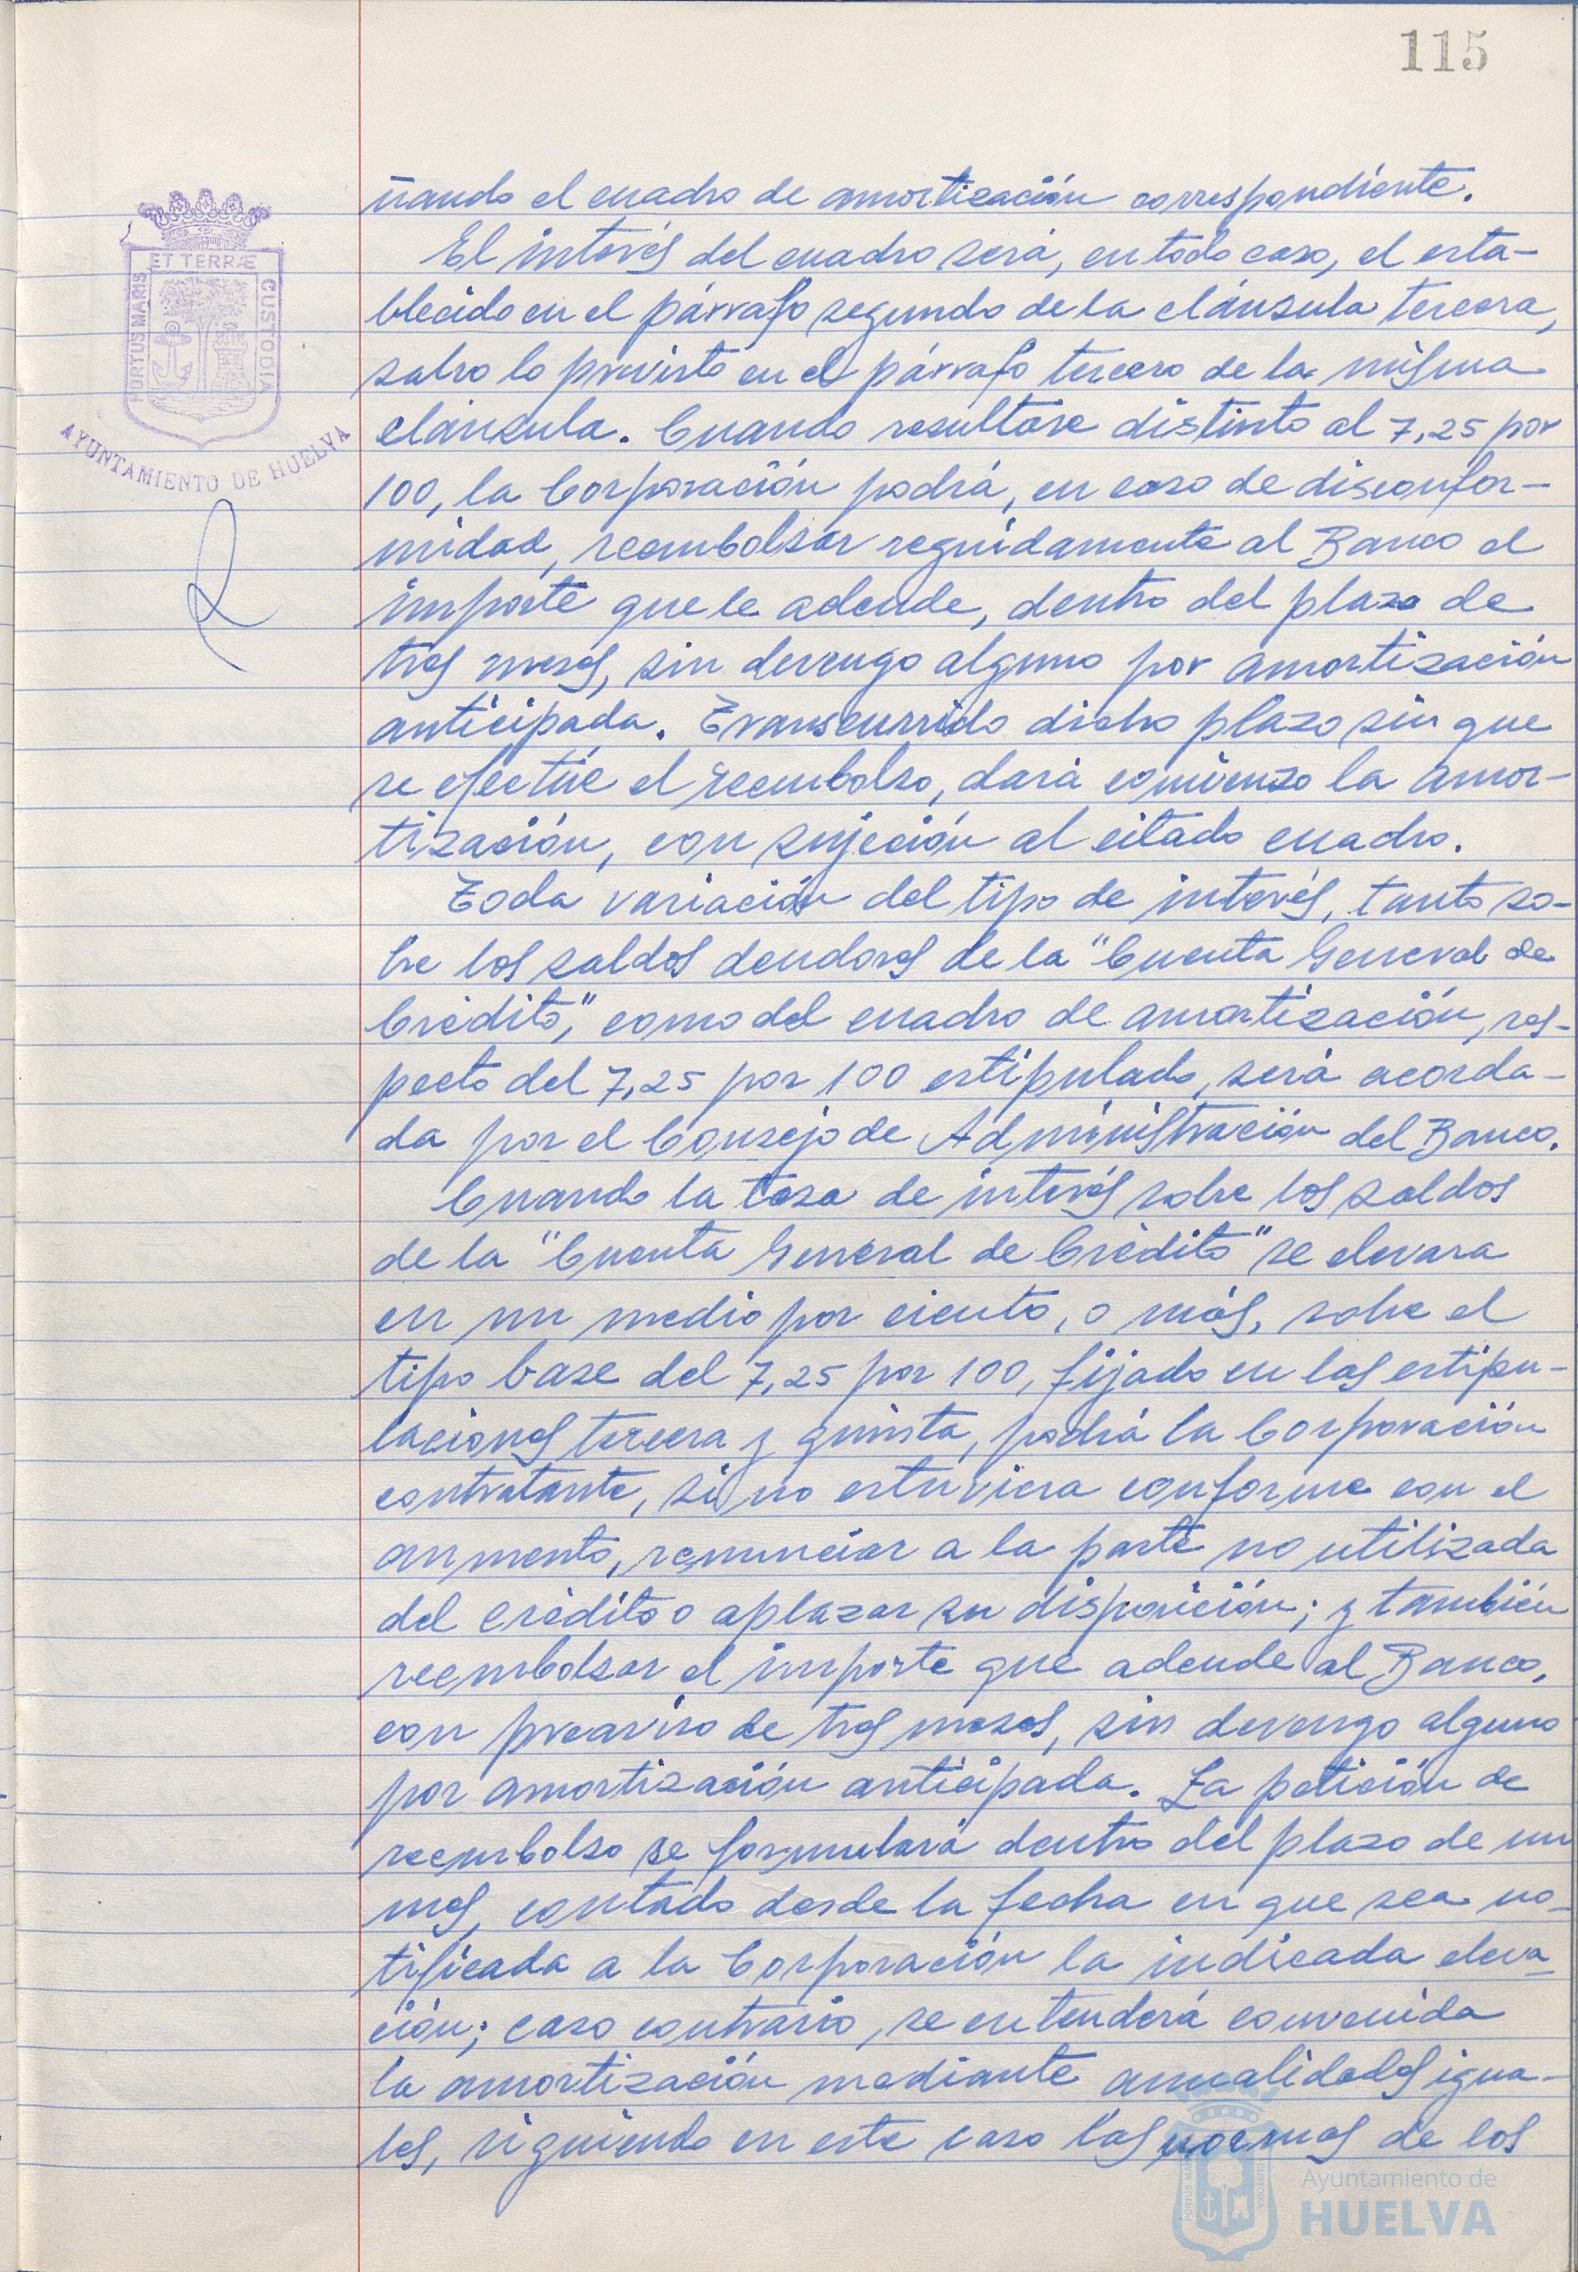 115
ñando el cuadro de amortización correspondiente.
El interés del cuadro será, en todo caso, el esta-
blecido en el párrafo segundo de la cláusula tercera,
salvo lo previsto en el párrafo tercero de la misma
cláusula. Cuando resultase distinto al 7,25 por
100, la Corporación podrá, en caso de disconfor-
midad, reembolsar seguidamente al Banco el
importe que le adeude, dentro del plazo de
tres meses, sin devengo alguno por amortización
anticipada. Transcurrido dicho plazo sin que
se efectúe el reembolso, dará comienzo la amor-
tización, con sujeción al citado cuadro.
Toda variación del tipo de interés, tanto so-
bre los saldos deudores de la "Cuenta General de
Crédito", como del cuadro de amortización, res-
pecto del 7,25 por 100 estipulado, será acorda-
da por el Consejo de Administración del Banco.
Cuando la tasa de interés sobre los saldos
de la "Cuenta General de Crédito" se elevara
en un medio por ciento, o más, sobre el
tipo base del 7,25 por 100, fijado en las estipu-
laciones tercera y quinta, podrá la Corporación
contratante, si no estuviera conforme con el
aumento, renunciar a la parte no utilizada
del crédito o aplazar su disposición; y también
reembolsar el importe que adeude al Banco,
con preaviso de tres meses, sin devengo alguno
por amortización anticipada. La petición de
reembolso se formulará dentro del plazo de un
mes, contado desde la fecha en que sea no-
tificada a la Corporación la indicada eleva-
ción; caso contrario, se entenderá convenida
la amortización mediante anualidades igua-
les, siguiendo en este caso las normas de los
PORTUS MARIS
ET TERRÆ
CUSTODIA
AYUNTAMIENTO DE HUELVA
Ayuntamiento de
HUELVA